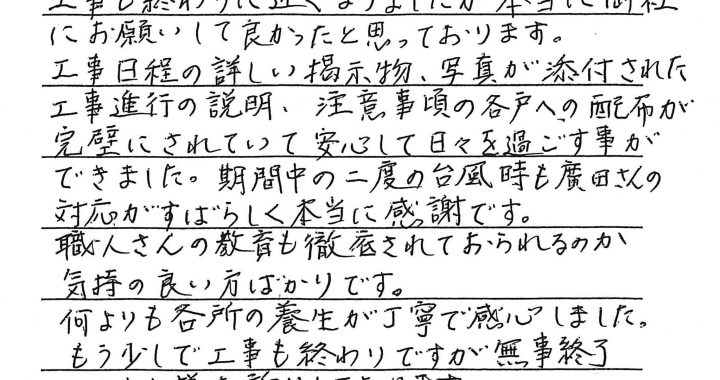 工事も終わりに近くなりましたが本当に御社
にお願いして良かったと思っております。
工事日程の詳しい掲示物、写真が添付された
工事進行の説明、注意事項の各戸への配布が
完璧にされていて安心して日々を過ごす事が
できました。期間中の二度の台風時も廣田さんの
対応がすばらしく本当に感謝です。
職人さんの教育も徹底されておられるのか
気持の良い方ばかりです。
何よりも各所の養生が丁寧で感心しました。
もう少しで工事も終わりですが無事終了